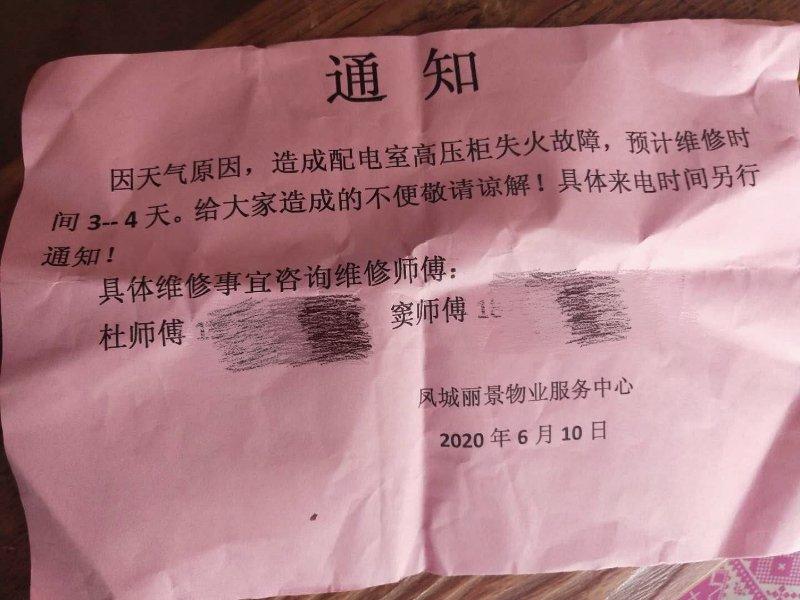 通知
因天气原因，造成配电室高压柜失火故障，预计维修时
间 3-- 4 天。给大家造成的不便敬请谅解！具体来电时间另行
通知！
具体维修事宜咨询维修师傅：
杜师傅 窦师傅
凤城丽景物业服务中心
2020 年 6 月 10 日